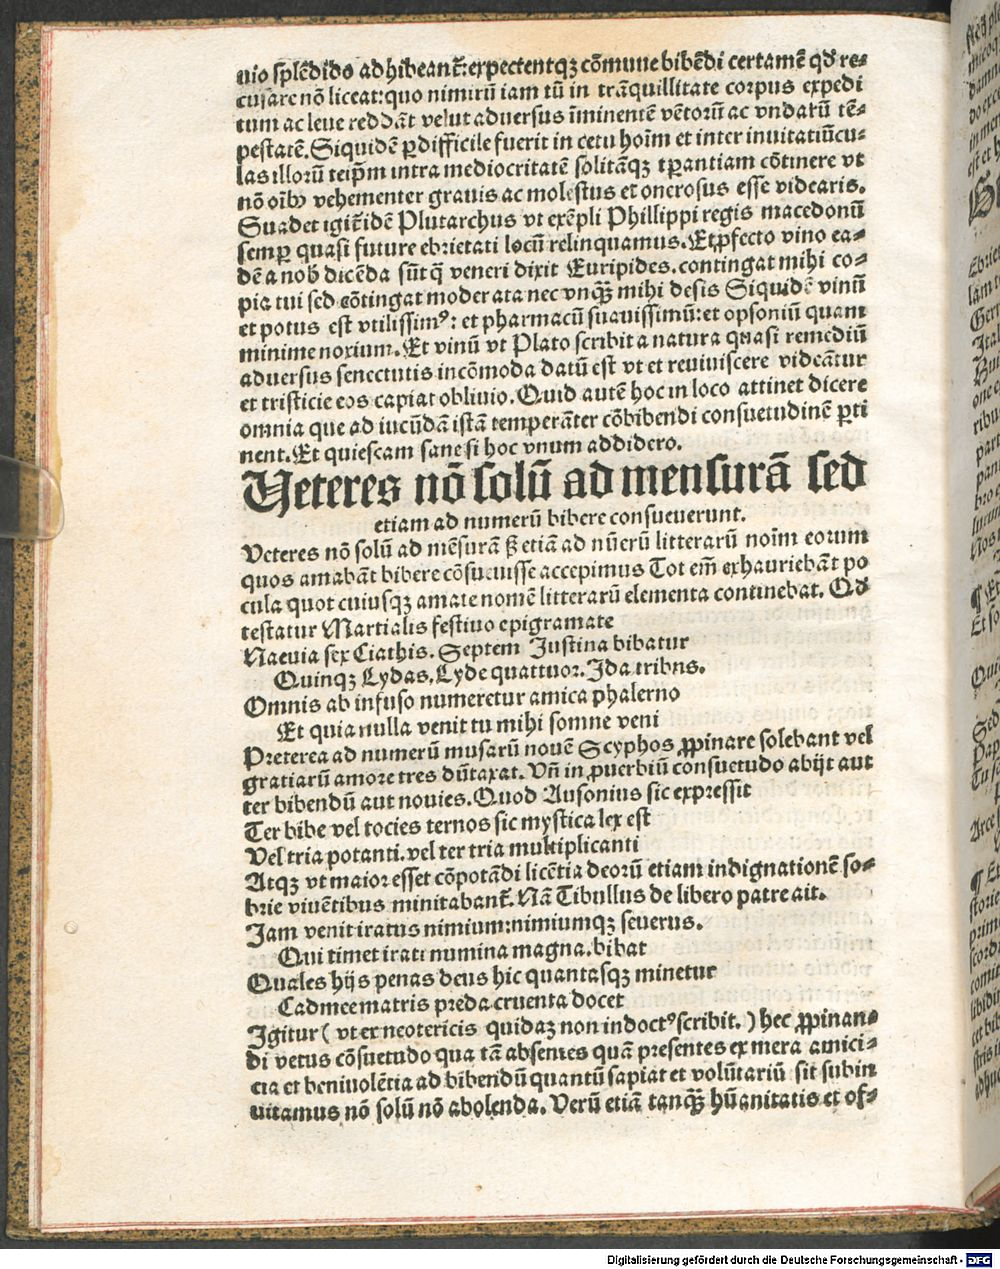 uio splēdido adhibeant᷑: expectentqꝫ cōmune bibēdi certamē qd̕ re⸗
cusare nō liceat: quo nimirū iam tū in trāquillitate corpus expedi
tum ac leue reddāt velut aduersus īminentē vētorū ac vndarū tē⸗
pestatē. Siquidē ꝑdifficile fuerit in cetu hoīm et inter inuitatiūcu⸗
las illorū teip̄m intra mediocritatē solitāqꝫ tꝑantiam cōtinere vt
nō oībꝰ vehementer grauis ac molestus et onerosus esse videaris.
Suadet igit᷑ idē Plutarchus vt exēpli Phillippi regis macedonū
semꝑ quasi future ebrietati locū relinquamus. Et ꝓfecto vino ea⸗
dē a nob̕ dicēda sūt q̄ veneri dixit Euripides. contingat mihi co⸗
pia tui sed cōtingat moderata nec vnqꝫ̄ mihi desis Siquidē vinū
et potus est vtilissimꝰ: et pharmacū suauissimū: et opsoniū quam
minime noxium. Et vinū vt Plato scribit a natura quasi remediū
aduersus senectutis incōmoda datū est vt et reuiuiscere videātur
et tristicie eos capiat obliuio. Quid autē hoc in loco attinet dicere
omnia que ad iucūdā istā temperāter cōbibendi consuetudinē ꝑti
nent. Et quiescam sane si hoc vnum addidero.
Veteres nō solū ad mensurā sed
etiam ad numerū bibere consueuerunt.
Veteres nō solū ad mēsurā sꝫ etiā ad nūerū litterarū noīm eorum
quos amabāt bibere cōsueuisse accepimus Tot em̄ exhauriebāt po
cula quot cuiusqꝫ amate nomē litterarū elementa continebat. Qd̕
testatur Martialis festiuo epigramate
Naeuia sex Ciathis. Septem Justina bibatur
Quinqꝫ Lydas. Lyde quattuor. Jda tribus.
Omnis ab infuso numeretur amica phalerno
Et quia nulla venit tu mihi somne veni
Preterea ad numerū musarū nouē Scyphos ꝓpinare solebant vel
gratiarū amore tres dūtaxat. Vn̄ in ꝓuerbiū consuetudo abijt aut
ter bibendū aut nouies. Quod Ausonius sic expressit
Ter bibe vel tocies ternos sic mystica lex est
Vel tria potanti. vel ter tria multiplicanti
Atqꝫ vt maior esset cōpotādi licētia deorū etiam indignationē so⸗
brie viuētibus minitabant᷑. Nā Tibullus de libero patre ait.
Jam venit iratus nimium: nimiumqꝫ seuerus.
Qui timet irati numina magna. bibat
Quales hijs penas deus hic quantasqꝫ minetur
Cadmee matris preda cruenta docet
Jgitur (vt ex neotericis quidaꝫ non indoctꝰ scribit.) hec ꝓpinan⸗
di vetus cōsuetudo qua tā absentes quā presentes ex mera amici⸗
cia et beniuolētia ad bibendū quantū sapiat et volūtariū sit subin
uitamus nō solū nō abolenda. Verū etiā tanqꝫ̄ hūanitatis et of⸗
Digitalisierung gefördert durch die Deutsche Forschungsgemeinschaft - DFG